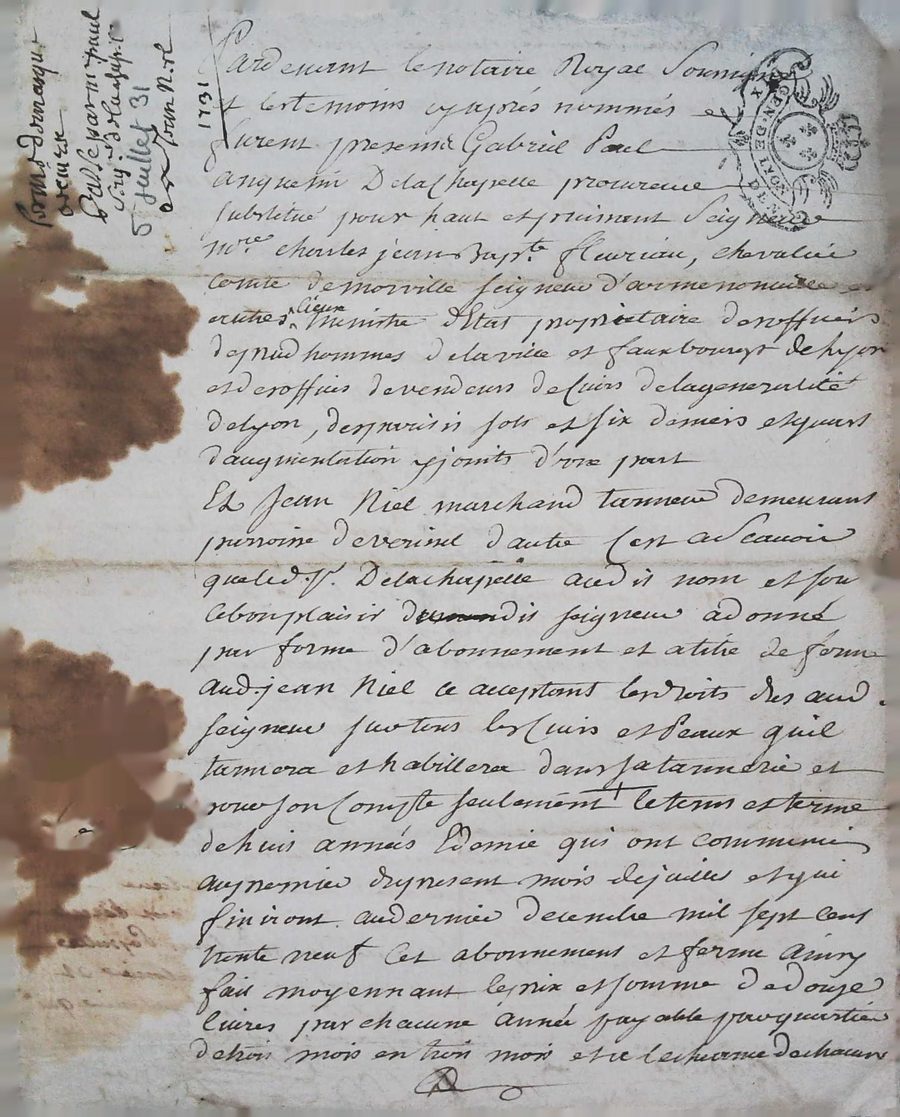 5 Juillet 31
1731
GEN. DE LYON
Pardevant le notaire Royal Soussigné
et les temoins cy après nommés
furent presents Gabriel Paul
anquetin Delachapelle procureur
substitué pour haut et puissant Seigneur
Mre charles jean Bapte fleuriau, chevalier
comte demorville seigneur d'armenonville et
autres Lieux Ministre d'Etat proprietaire desofficiers
deprud hommes delaville et fauxbourgs de Lyon
et desoffices devendeurs deCuirs delageneralité
delyon, des parisis sols et six deniers et quart
d'augmentation y joints d'une part
Et Jean Niel marchand tanneur demeurant
parroisse d'autre C'est a Scavoir
queled. Sr. Delachapelle aud it nom et sou
lebonplaisir dudit seigneur a donné
par forme d'abonnement et atitre de ferme
aud. jean Niel ce acceptant lesdroits dus aud.
seigneur surtous lesCuirs et Peaux quil
tannera et habillera dans sa tannerie et
pour son Compte seulement le tems et terme
dehuit années Edemie qui ont commencé
aupremier dupresent mois dejuillet et qui
finiront audernier decembre mil sept cent
trente neuf Cet abonnement et ferme ainsy
fait moyennant leprix et somme dedouze
livres par chacune année payable parquartier
detrois mois en trois mois et a lecheance dechacun